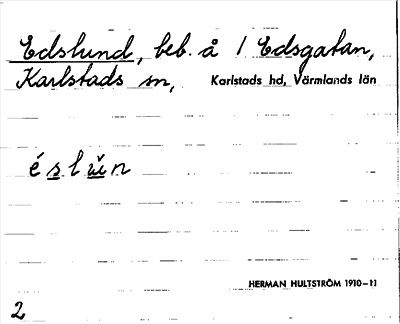 Edslund, beb. å 1 Edsgatan,
Karlstads sn, Karlstads hd, Värmlands län
é s l u̇ n
HERMAN HULTSTRÖM 1910–11
2